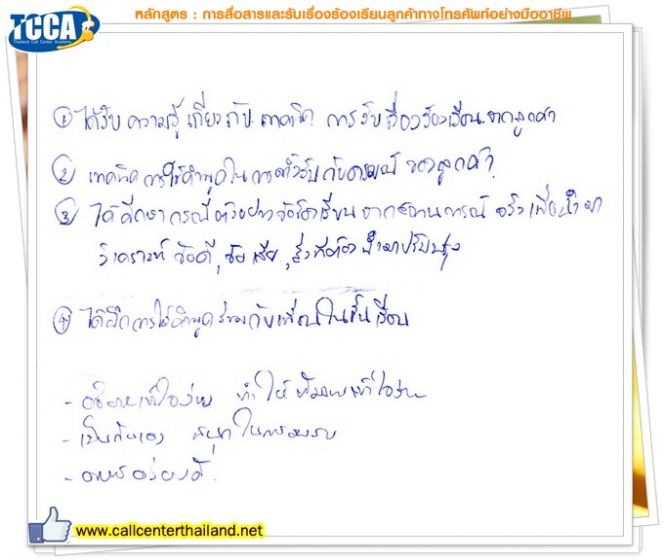 TCCA
Thailand Call Center Academy
หลักสูตร : การสื่อสารและรับเรื่องร้องเรียนลูกค้าทางโทรศัพท์อย่างมืออาชีพ
① ได้รับ ความรู้ เกี่ยวกับ เทคนิค การรับเรื่องร้องเรียน จากลูกค้า
② เทคนิค การใช้คำพูดใน การรับ กับอารมณ์ ของลูกค้า
③ ได้ศึกษา กรณีตัวอย่างข้อร้องเรียน จากสถานการณ์ จริง เพื่อนำมา
วิเคราะห์ ข้อดี, ข้อเสีย, สิ่งที่ต้อง นำมาปรับปรุง
④ ได้ฝึก การใช้คำพูด ร่วมกับเพื่อน ในชั้นเรียน
- อธิบายเข้าใจง่าย ทำให้ เข้าใจง่าย
- เป็นกันเอง สนุก ในการอบรม
- อาหารอร่อยดี
www.callcenterthailand.net